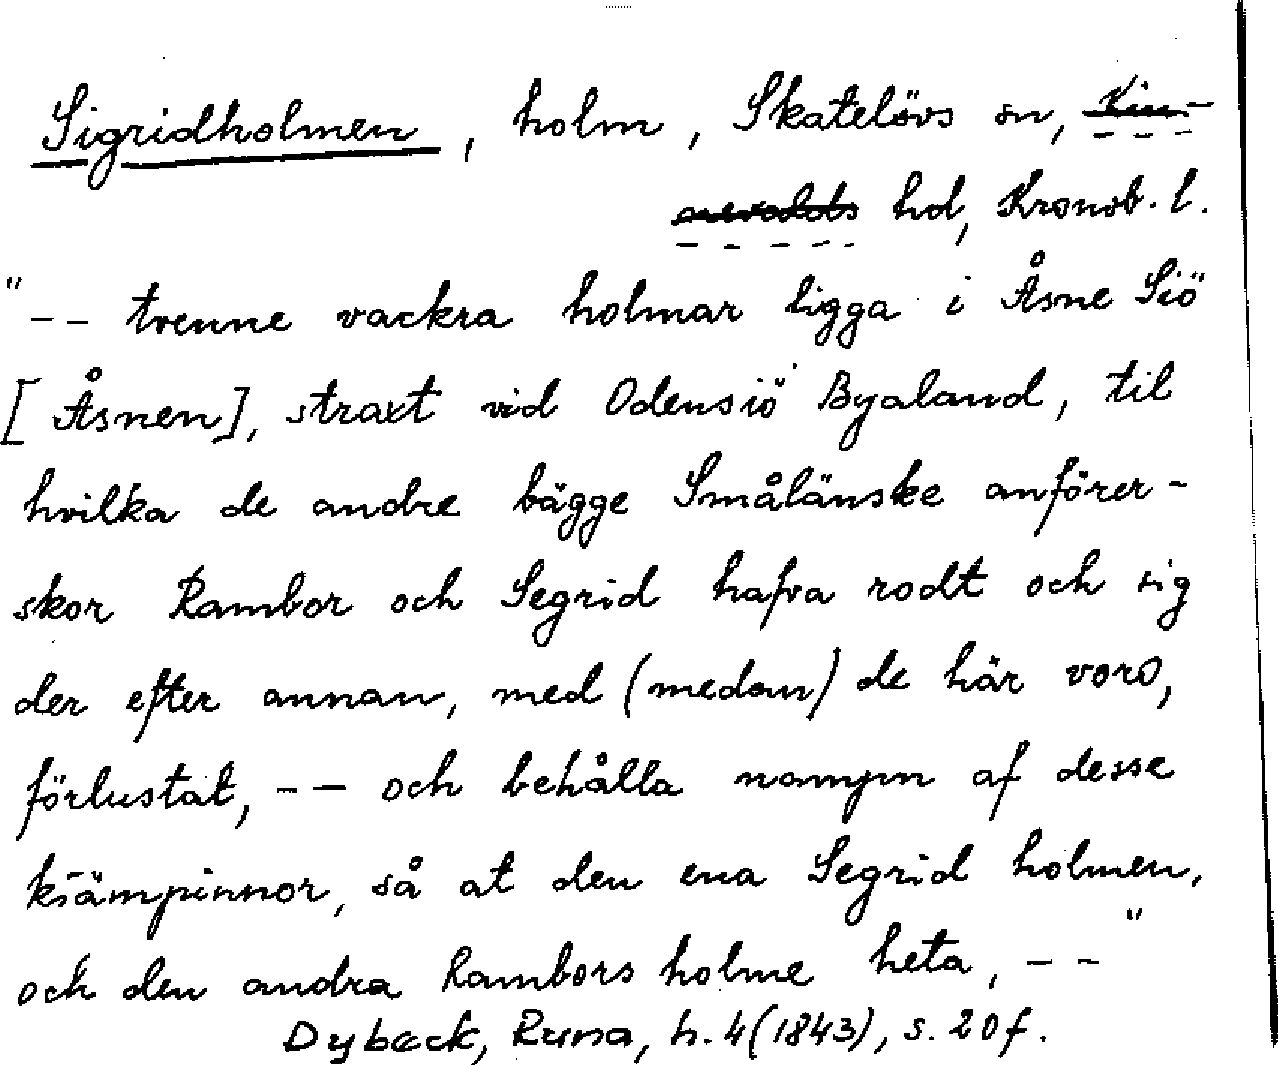 Sigridholmen, holm, Skatelövs sn, Kin-
nevalds hd, Kronob. l.
"-- trenne vackra holmar ligga i Åsne Siö
[Åsnen], straxt vid Odensiö Byaland, til
hvilka de andre bägge Smålänske anförer-
skor Rambor och Segrid hafva rodt och sig
der efter annan, med (medan) de här voro,
förlustat, -- och behålla nampn af desse
kiämpinnor, så at den ena Segrid holmen,
och den andra Rambors holme heta, --"
Dybeck, Runa, h. 4 (1843), s. 20 f.